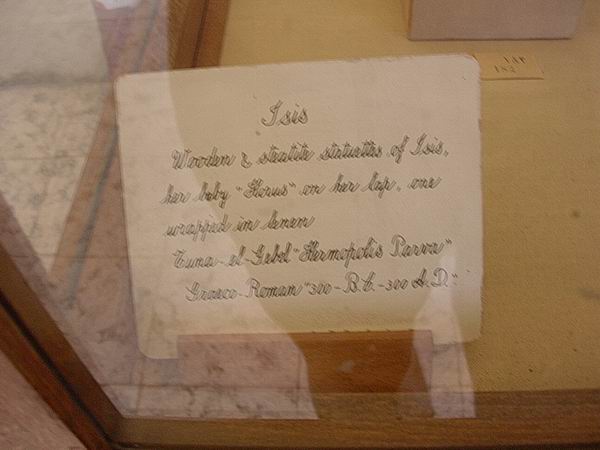 ١٨٢
182
Isis
Wooden & steatite statuettes of Isis,
her baby "Horus" on her lap, one
wrapped in linen
Tuna-el-Gebel "Hermopolis Parva"
Graeco-Roman "300-B.C.-300 A.D."